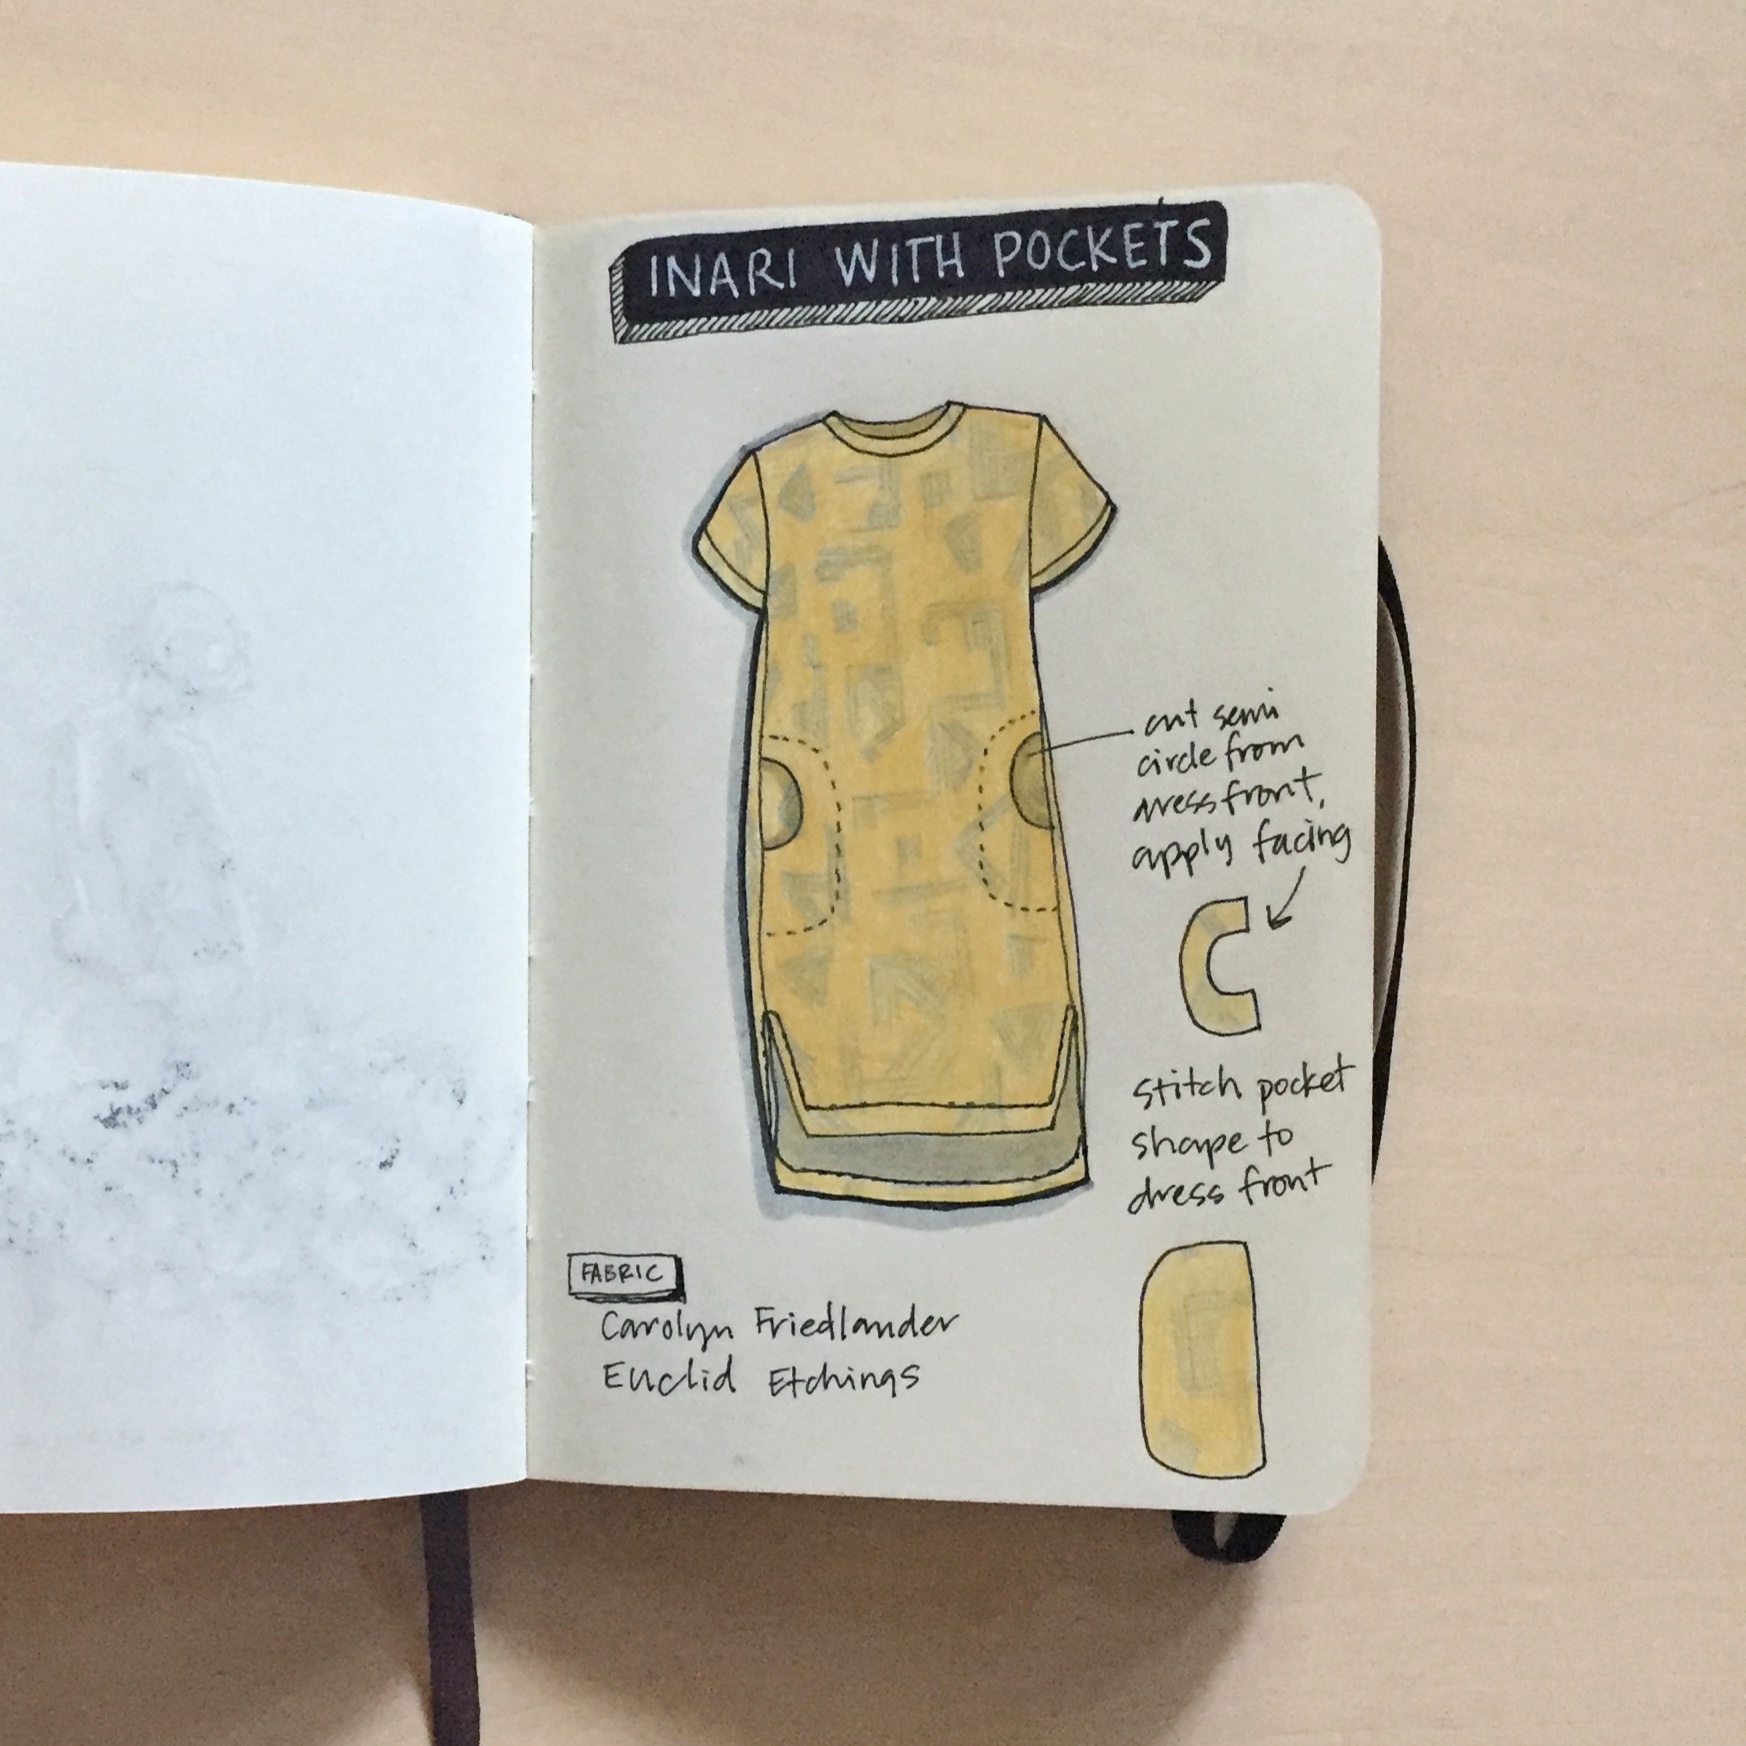 INARI WITH POCKETS
cut semi
circle from
dress front,
apply facing
stitch pocket
shape to
dress front
FABRIC
Carolyn Friedlander
Euclid Etchings